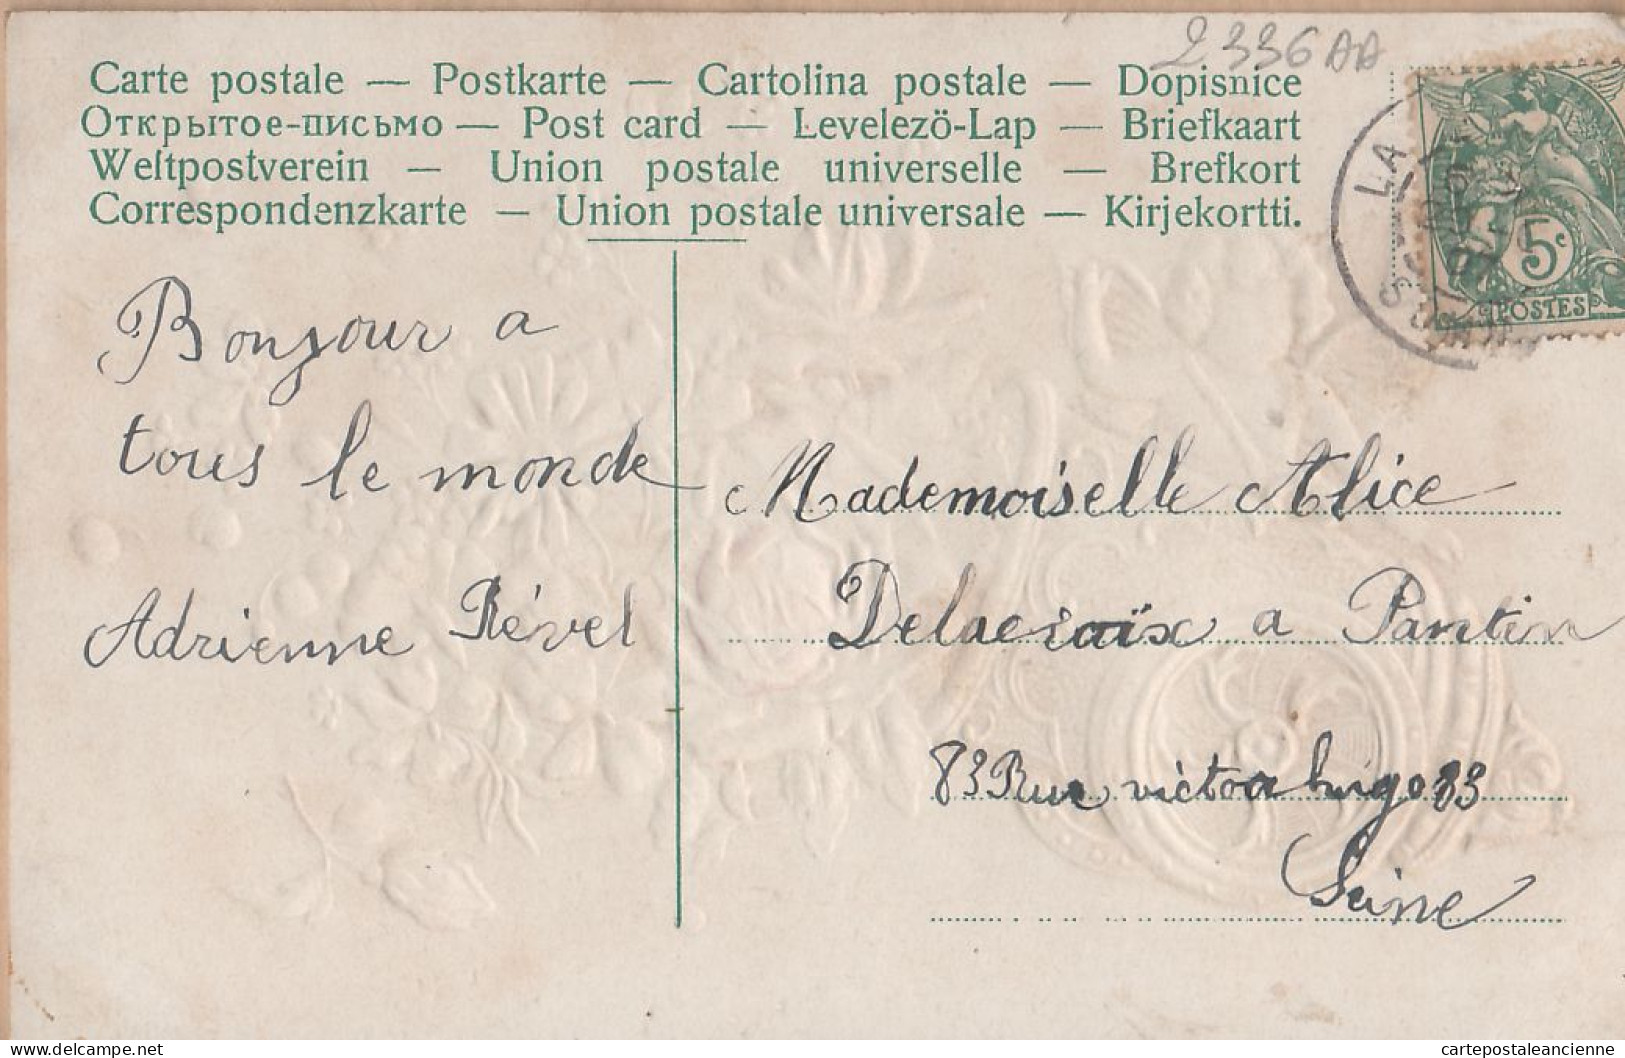 2336AA
Carte postale — Postkarte — Cartolina postale — Dopisnice
Открытое-письмо — Post card — Levelezö-Lap — Briefkaart
Weltpostverein — Union postale universelle — Brefkort
Correspondenzkarte — Union postale universale — Kirjekortti.
LA
5c
POSTES
Bonjour a
tous le monde
Adrienne Révél
Mademoiselle Alice
a Pantin
83 Rue victor hugo 83
Seine
delcampe.net
cartepostaleancienne